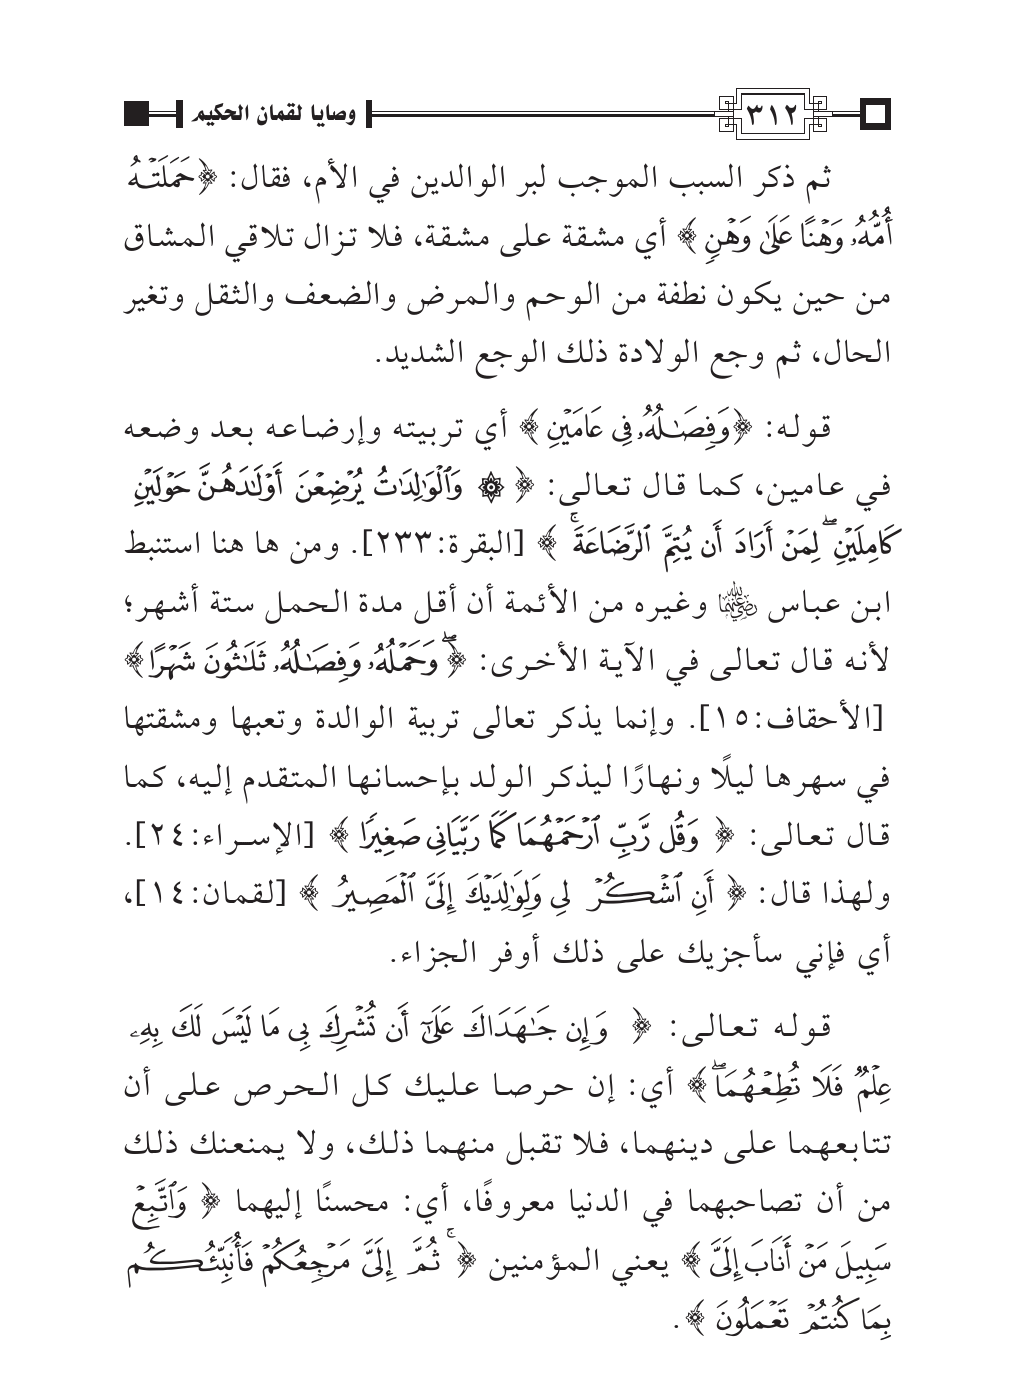 ٣١٢ وصايا لقمان الحكيم
ثم ذكر السبب الموجب لبر الوالدين في الأم، فقال: ﴿حَمَلَتْهُ
أُمُّهُۥ وَهْنًا عَلَىٰ وَهْنٍ﴾ أي مشقة على مشقة، فلا تزال تلاقي المشاق
من حين يكون نطفة من الوحم والمرض والضعف والثقل وتغير
الحال، ثم وجع الولادة ذلك الوجع الشديد.
قوله: ﴿وَفِصَٰلُهُۥ فِى عَامَيْنِ﴾ أي تربيته وإرضاعه بعد وضعه
في عامين، كما قال تعالى: ﴿ ۞ وَٱلْوَٰلِدَٰتُ يُرْضِعْنَ أَوْلَٰدَهُنَّ حَوْلَيْنِ
كَامِلَيْنِ ۖ لِمَنْ أَرَادَ أَن يُتِمَّ ٱلرَّضَاعَةَ ۚ ﴾ [البقرة:٢٣٣]. ومن ها هنا استنبط
ابن عباس رضي الله عنهما وغيره من الأئمة أن أقل مدة الحمل ستة أشهر؛
لأنه قال تعالى في الآية الأخرى: ﴿ ۖ وَحَمْلُهُۥ وَفِصَٰلُهُۥ ثَلَٰثُونَ شَهْرًا﴾
[الأحقاف:١٥]. وإنما يذكر تعالى تربية الوالدة وتعبها ومشقتها
في سهرها ليلًا ونهارًا ليذكر الولد بإحسانها المتقدم إليه، كما
قال تعالى: ﴿ وَقُل رَّبِّ ٱرْحَمْهُمَا كَمَا رَبَّيَانِى صَغِيرًا ﴾ [الإسراء:٢٤].
ولهذا قال: ﴿ أَنِ ٱشْكُرْ لِى وَلِوَٰلِدَيْكَ إِلَىَّ ٱلْمَصِيرُ ﴾ [لقمان:١٤]،
أي فإني سأجزيك على ذلك أوفر الجزاء.
قوله تعالى: ﴿ وَإِن جَٰهَدَاكَ عَلَىٰٓ أَن تُشْرِكَ بِى مَا لَيْسَ لَكَ بِهِۦ
عِلْمٌ فَلَا تُطِعْهُمَا ۖ﴾ أي: إن حرصا عليك كل الحرص على أن
تتابعهما على دينهما، فلا تقبل منهما ذلك، ولا يمنعنك ذلك
من أن تصاحبهما في الدنيا معروفًا، أي: محسنًا إليهما ﴿ وَٱتَّبِعْ
سَبِيلَ مَنْ أَنَابَ إِلَىَّ ﴾ يعني المؤمنين ﴿ ۚ ثُمَّ إِلَىَّ مَرْجِعُكُمْ فَأُنَبِّئُكُم
بِمَا كُنتُمْ تَعْمَلُونَ ﴾.